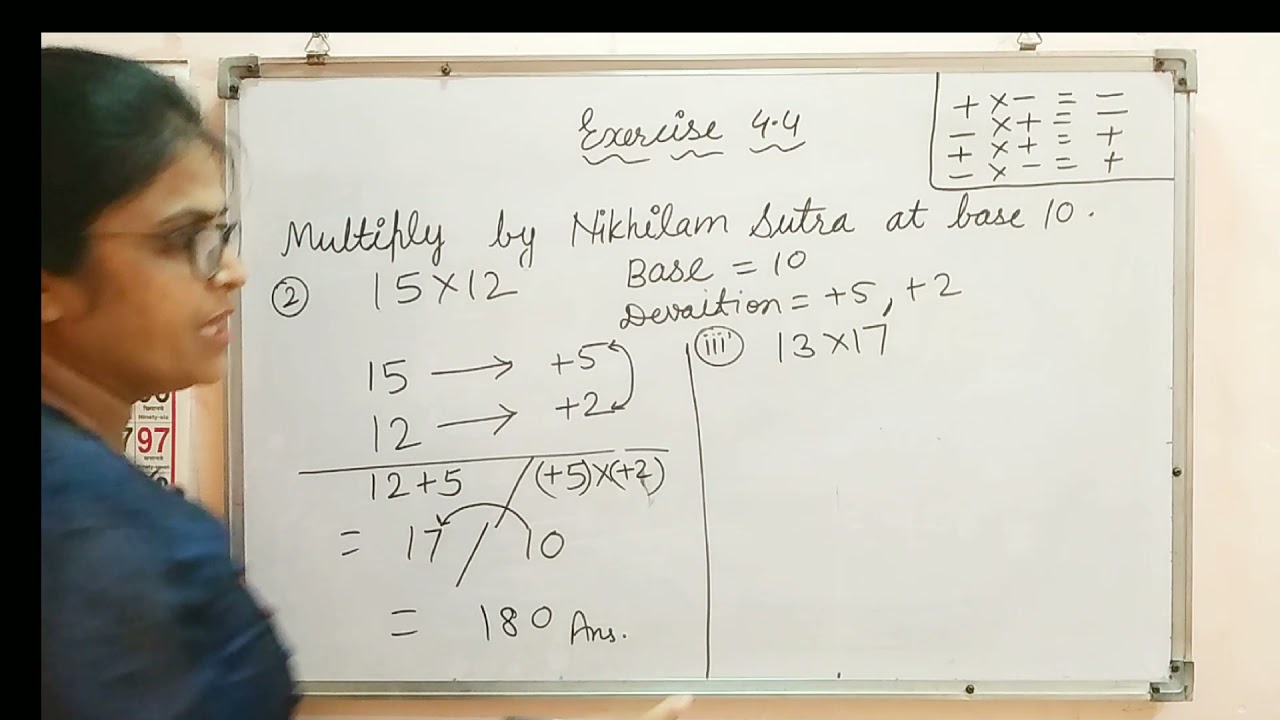 Exercise 4.4
+ × - = -
- × + = -
+ × + = +
- × - = +
Multiply by Nikhilam Sutra at base 10.
② 15×12
Base = 10
Devaition = +5, +2
15 → +5
12 → +2
12+5 / (+5)×(+2)
= 17 / 10
= 180 Ans.
iii 13×17
97